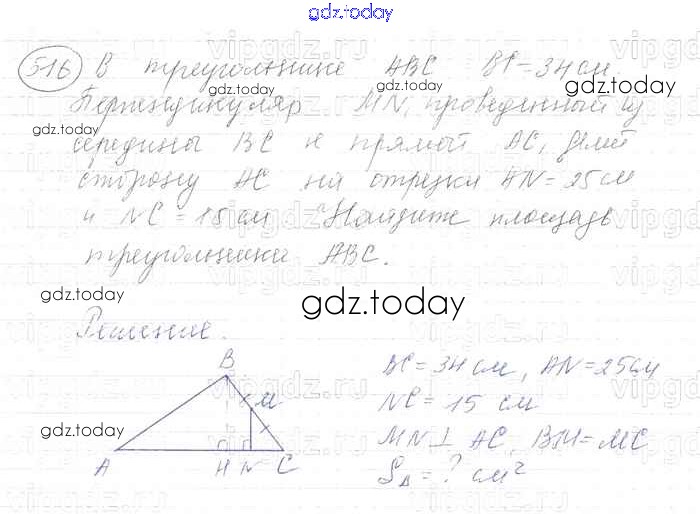 gdz.today
516 В треугольнике ABC BC = 34 см.
Перпендикуляр MN, проведенный из
gdz.today gdz.today
середины BC к прямой AC, делит
сторону AC на отрезки AN = 25 см
gdz.today gdz.today
и NC = 15 см. Найдите площадь
треугольника ABC.
gdz.today
gdz.today
Решение.
B
M
A H N C
gdz.today
gdz.today
BC = 34 см, AN = 25 см
NC = 15 см
gdz.today
MN ⊥ AC, BM = MC
SΔ = ? см²
gdz.today